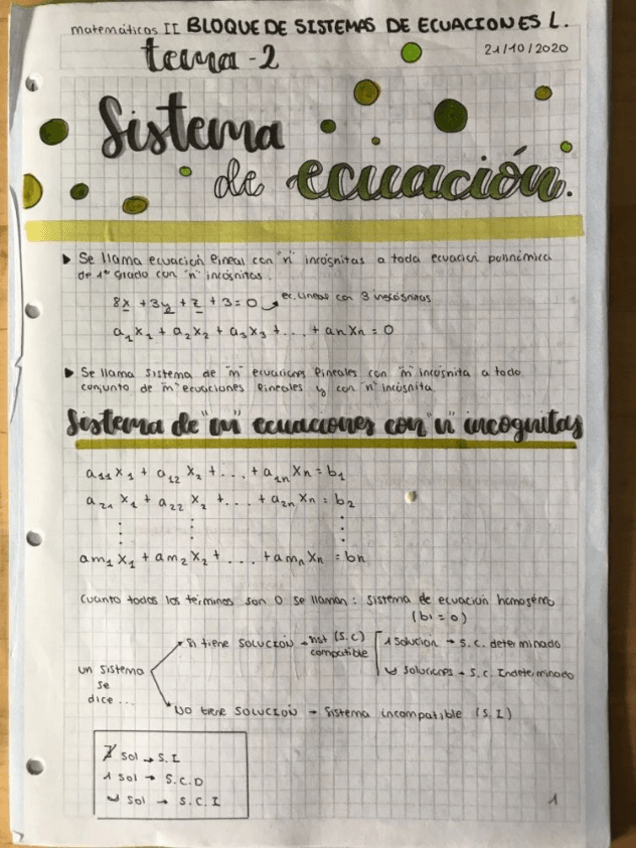 matemáticas II BLOQUE DE SISTEMAS DE ECUACIONES L.
tema-2
21/10/2020
Sistema
de ecuación.
▸ Se llama ecuación lineal con "n" incógnitas a toda ecuación polinómica
de 1er grado con "n" incógnitas.
8x + 3y + z + 3 = 0 → ec. lineal con 3 incógnitas
a₁x₁ + a₂x₂ + a₃x₃ + ... + anxn = 0
▸ Se llama sistema de "m" ecuaciones lineales con "n" incógnita a todo
conjunto de "m" ecuaciones lineales y con "n" incógnita.
Sistema de "m" ecuaciones con "n" incognitas
a₁₁x₁ + a₁₂x₂ + ... + a₁nxn = b₁
a₂₁x₁ + a₂₂x₂ + ... + a₂nxn = b₂
⋮ ⋮ ⋮
am₁x₁ + am₂x₂ + ... + amnxn = bn
Cuanto todos los términos son 0 se llaman: sistema de ecuación homogéneo
(bi = 0)
un sistema
se
dice...
Si tiene SOLUCIÓN → sist (S.C)
compatible
1 solución → S.C. determinado
∞ soluciones → S.C. Indeterminado
NO tiene SOLUCIÓN → Sistema incompatible (S.I)
∄ sol → S.I
1 sol → S.C.D
∞ sol → S.C.I
1